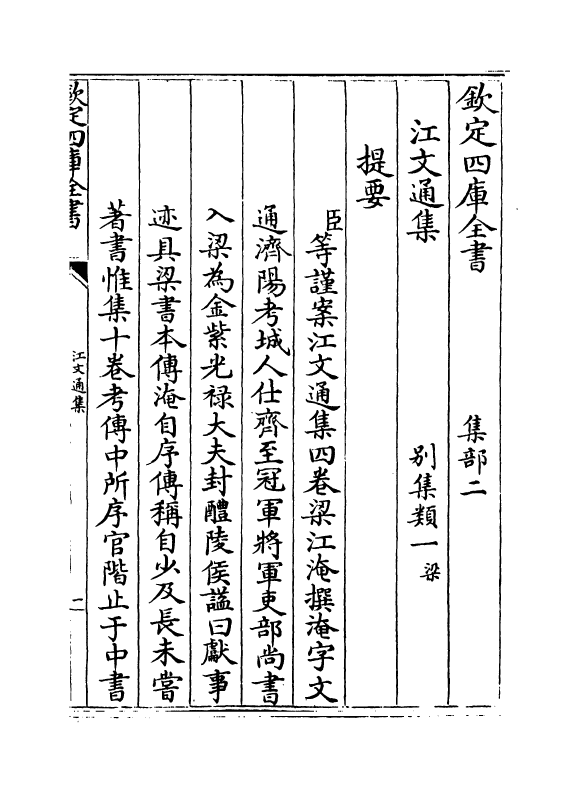 欽定四庫全書 集部二
江文通集 別集類一梁
提要
臣等謹案江文通集四卷梁江淹撰淹字文
通濟陽考城人仕齊至冠軍將軍吏部尚書
入梁為金紫光禄大夫封醴陵侯諡曰獻事
迹具梁書本傳淹自序傳稱自少及長未嘗
著書惟集十卷考傳中所序官階止于中書
欽定四庫全書
江文通集
二